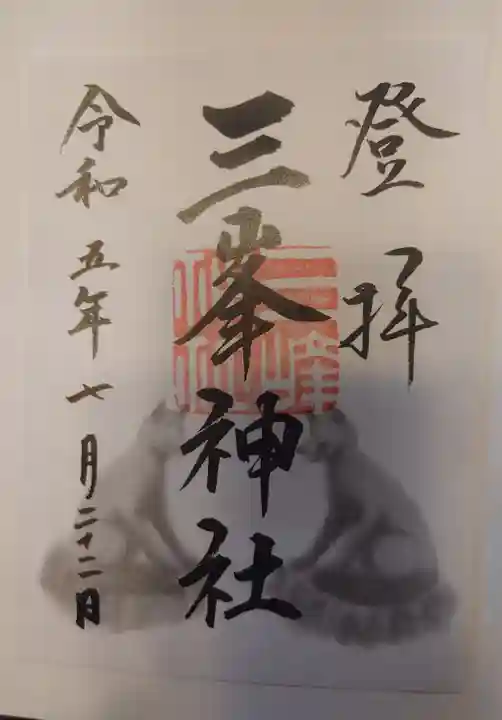 登拝
三峯神社
令和五年七月二十二日